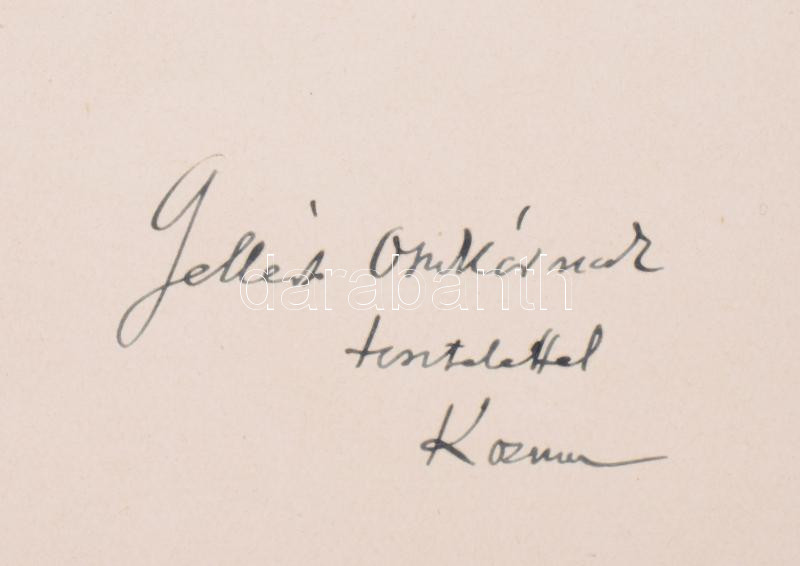 Gellért Oszkárnak
darabanth
tisztelettel
Kozma